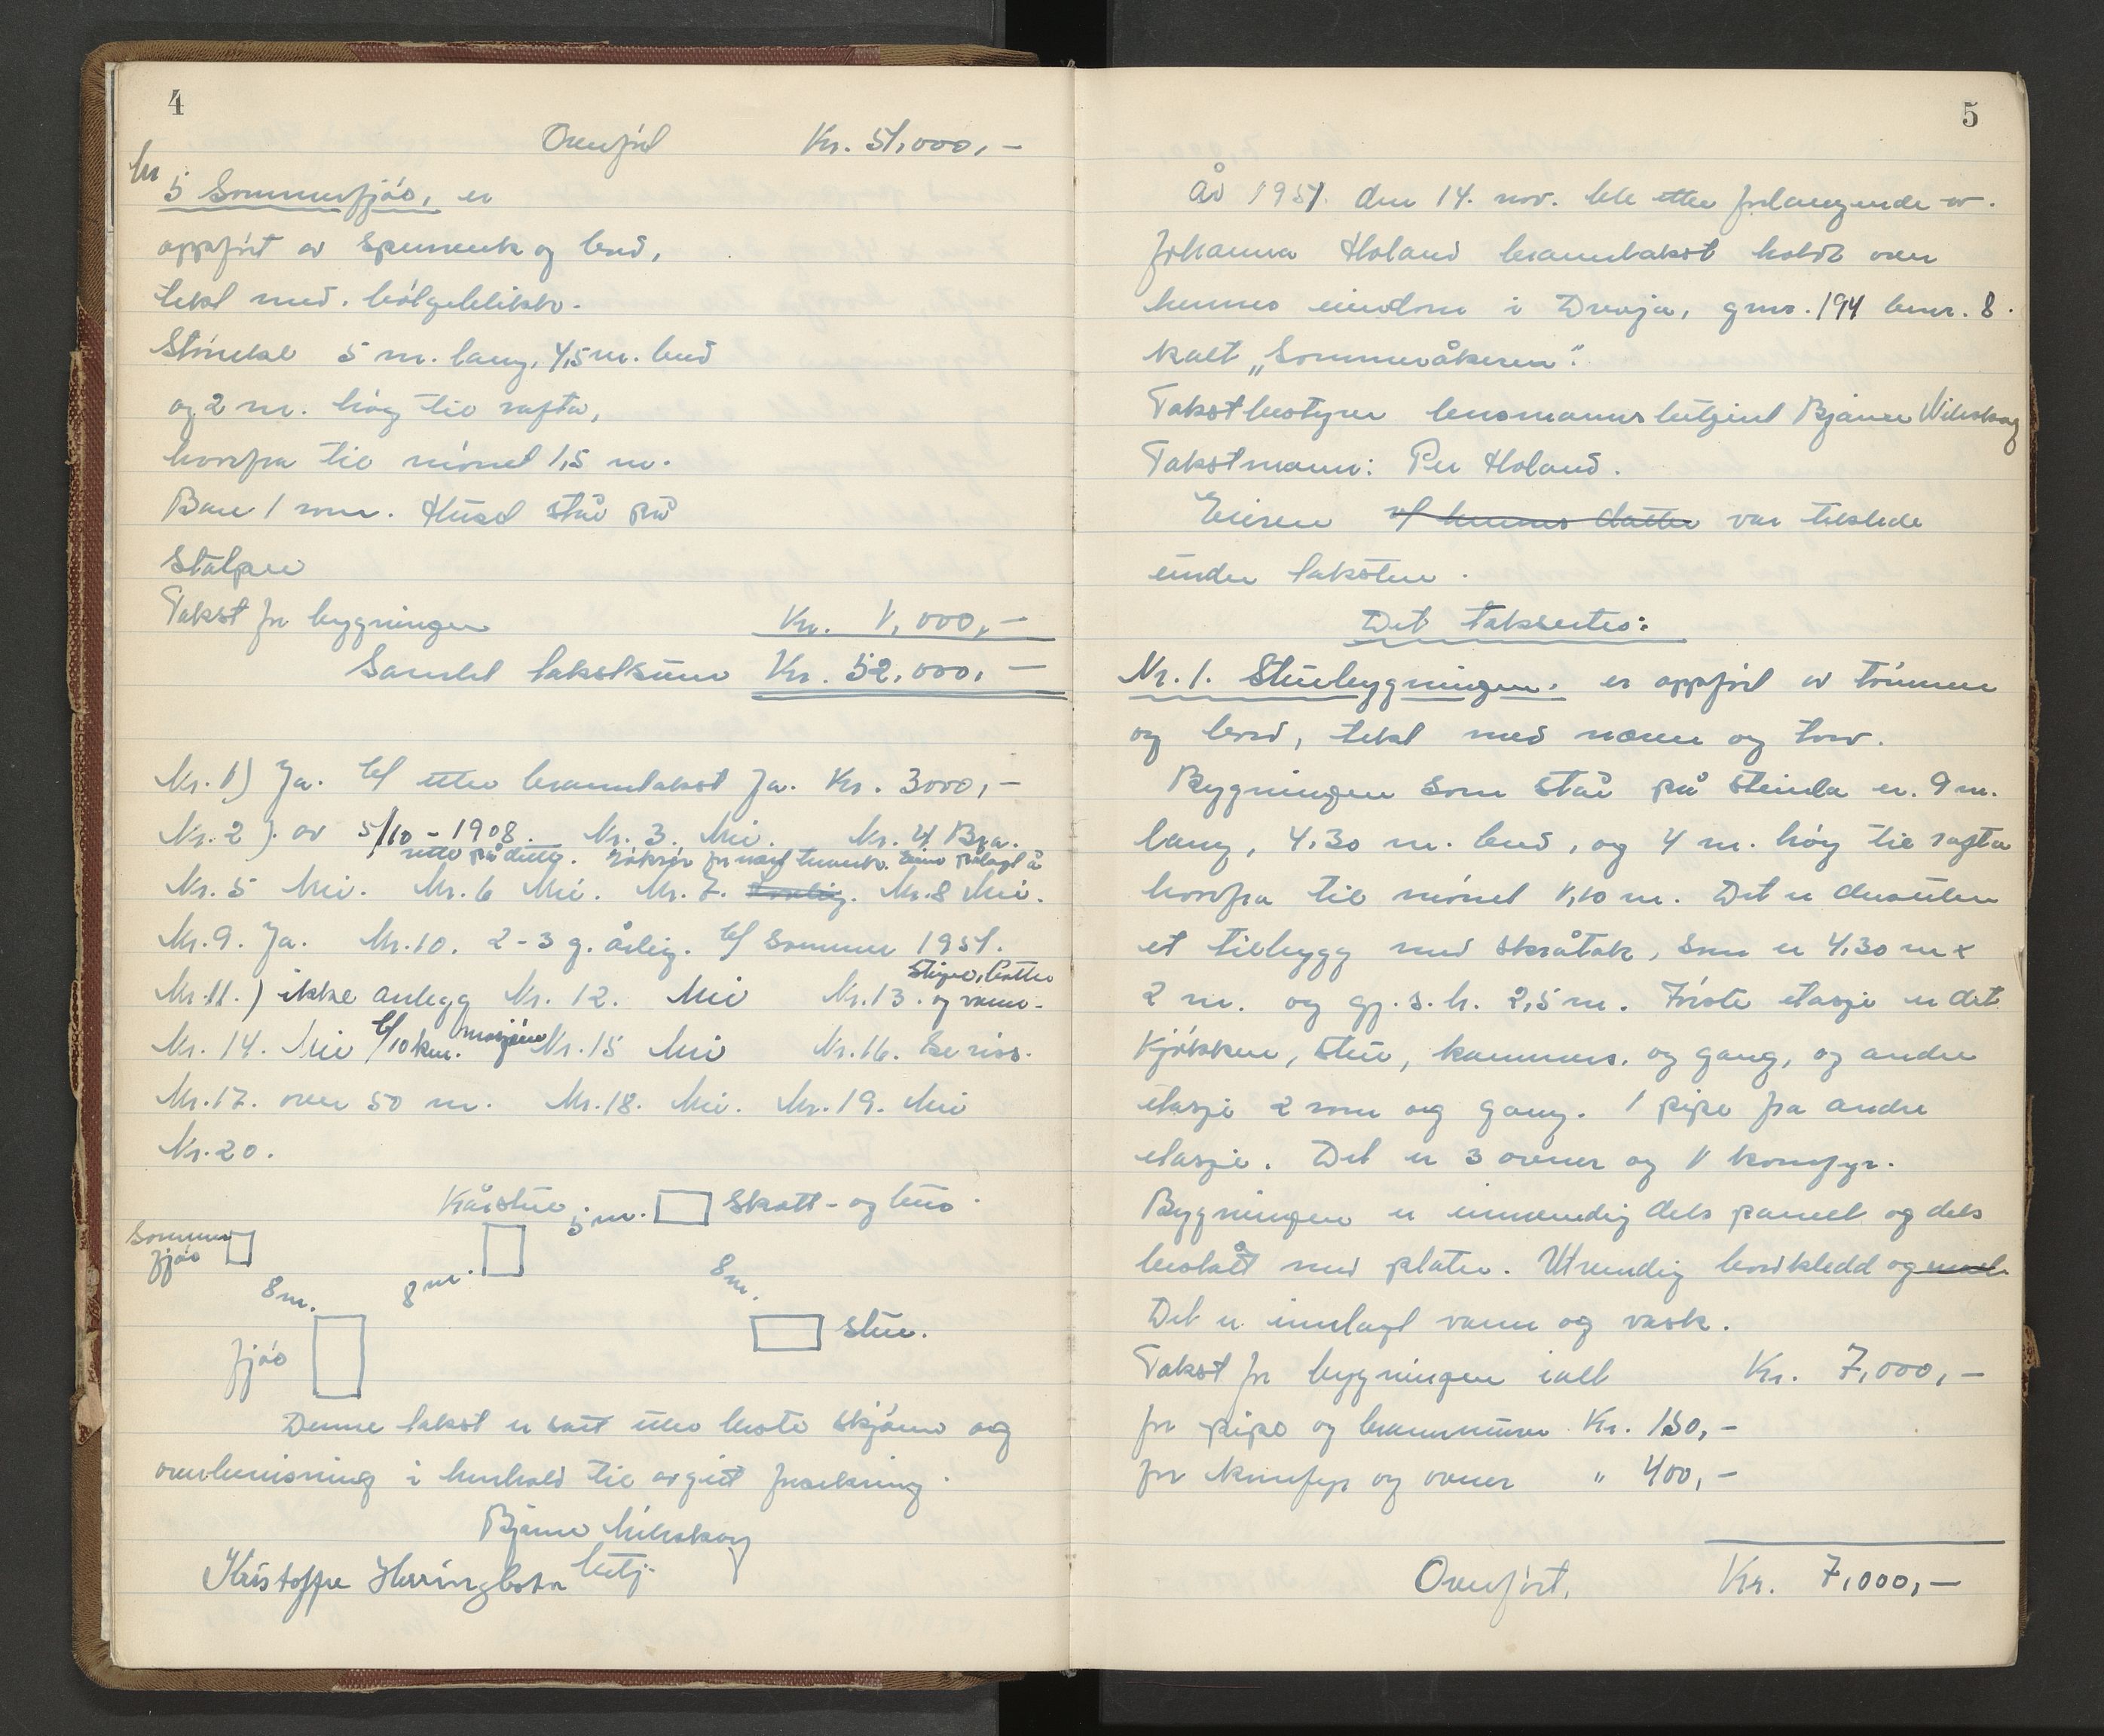 4
Overført Kr. 51.000,-
Nr
5 Sommerfjøs, er
oppført av spunnverk og bord,
tekt med. bølgeblikk.
Størrelse 5 m. lang, 4,5 m. bred
og 2 m. høg til rafta,
hvorfra til mønet 1,5 m.
Bare 1 rom. Huset står på
stolper
Takst for bygningen Kr. 1,000,-
Samlet takstsum Kr. 52.000,-
Nr. 1) Ja. b/ etter branntakst Ja. Kr. 3000,-
Nr. 2). av 5/10 - 1908. Nr. 3. Nei. Nr. 4 Bra.
rette på dette. Røkrør for nært treverk. Eier pålagt å
Nr. 5 Nei. Nr. 6 Nei. Nr. 7. Nr. 8 Nei.
Nr. 9. Ja. Nr. 10. 2-3 g. årlig. b/ Sommer 1951.
Nr. 11.) ikke anlegg Nr. 12. Nei Nr. 13. Stiger, bøtter og vann.
Nr. 14. Nei b/ 10 km. Mosjøen Nr. 15 Nei Nr. 16. Se riss.
Nr. 17. over 50 m. Nr. 18. Nei. Nr. 19. Nei
Nr. 20.
Kårstue 5 m. Skott- og bus.
Sommer
fjøs
8 m. 8 m. 8 m.
Stue.
fjøs
Denne takst er satt etter beste skjønn og
overbevisning i henhold til avgitt forsikring.
Bjarne Wilkskog
betj.
Kristoffer Herringbotn
5
År 1951 den 14. nov. ble etter forlangende av.
Johanna Holand branntakst holdt over
hennes eiendom i Drevja, gnr. 194 bnr. 8.
kalt „Sommeråkeren".
Takstbestyrer lensmannsbetjent Bjarne
Takstmann: Per Holand.
Eieren v/ hennes datter var tilstede
under taksten.
Det takseres:
Nr. 1. Stuebygningen, er oppført av tømmer
og bord, tekt med never og torv.
Bygningen som står på steinla er. 9 m.
lang, 4,30 m. bred, og 4 m. høg til rafta
hvorfra til mønet 1,10 m. Det er dessuten
et tilbygg med skråtak, som er 4,30 m x
2 m. og gj. s. h. 2,5 m. Første etasje er det
kjøkken, stue, kammers. og gang, og andre
etasje 2 rom og gang. 1 pipe fra andre
etasje. Det er 3 ovner og 1 komfyr.
Bygningen er innvendig dels panelt og dels
beslått med plater. Utvendig bordkledd og
Det er innlagt vann og vask.
Takst for bygningen ialt Kr. 7,000,-
for pipe og brannmurer Kr. 150,-
for komfyr og ovner " 400,-
Overført, Kr. 7,000,-